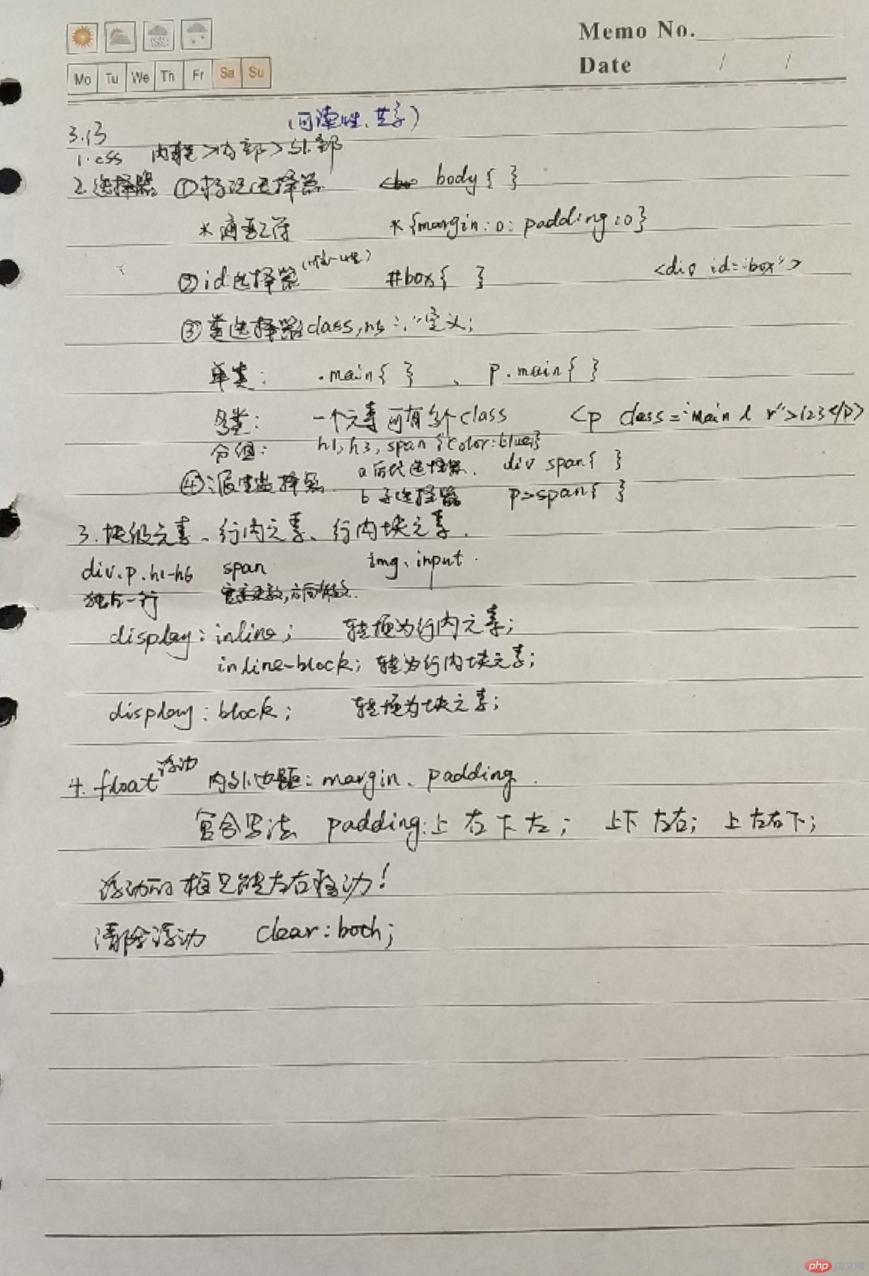 Memo No.
Mo Tu We Th Fr Sa Su
Date / /
3.13 (可读性、共享)
1. css 内联>内部>外部
2. 选择器 ①标记选择器 body{ }
*通配符 *{margin:0: padding:0}
②id选择器(唯一性) #box{ } <div id="box">
③类选择器class, "."定义;
单类: .main{ } 、 p.main{ }
多类: 一个元素可有多个class <p class="main l r">123</p>
分组: h1,h3,span{color:blue;}
④派生选择器 a后代选择器. div span{ }
b 子选择器 p>span{ }
3. 块级元素、行内元素、行内块元素.
div.p.h1-h6 span img、input.
独占一行
display: inline; 转换为行内元素;
inline-block; 转为行内块元素;
display: block; 转换为块元素;
4. float浮动 内外边距: margin、padding.
复合写法 padding:上 右 下 左; 上下 左右; 上 左右 下;
浮动的框只能左右移动!
清除浮动 clear:both;
php